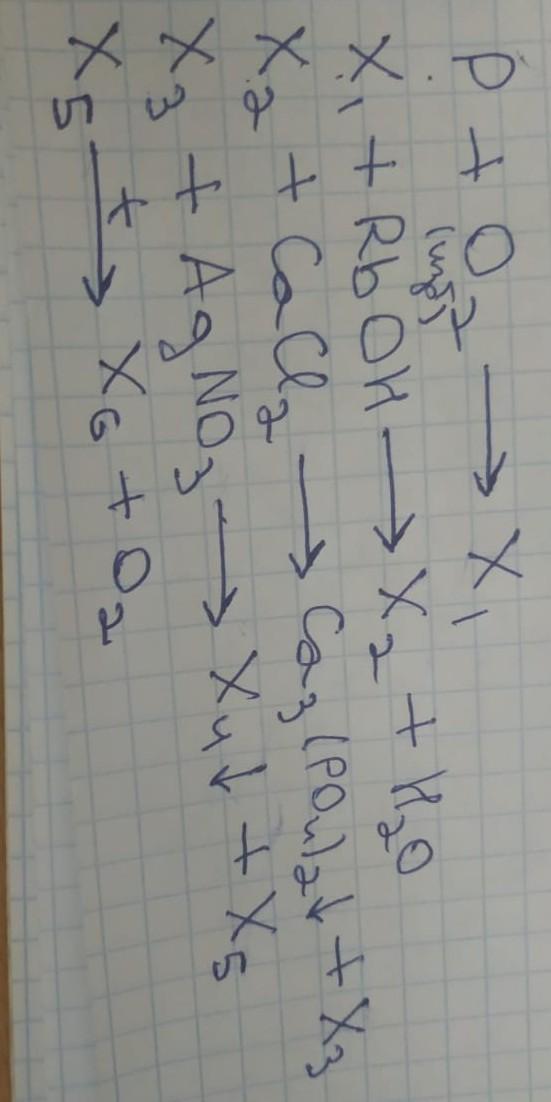 P + O₂ (изб) → X₁
X₁ + RbOH → X₂ + H₂O
X₂ + CaCl₂ → Ca₃(PO₄)₂↓ + X₃
X₃ + AgNO₃ → X₄↓ + X₅
X₅ →ᵗ X₆ + O₂